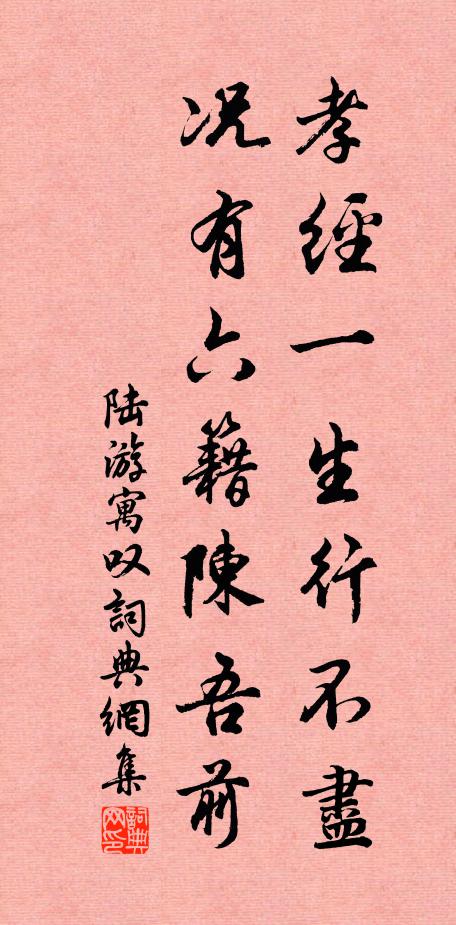 孝經一生行不盡
况有六籍陳吾前
陆游寓叹詞典網集
詞典网印